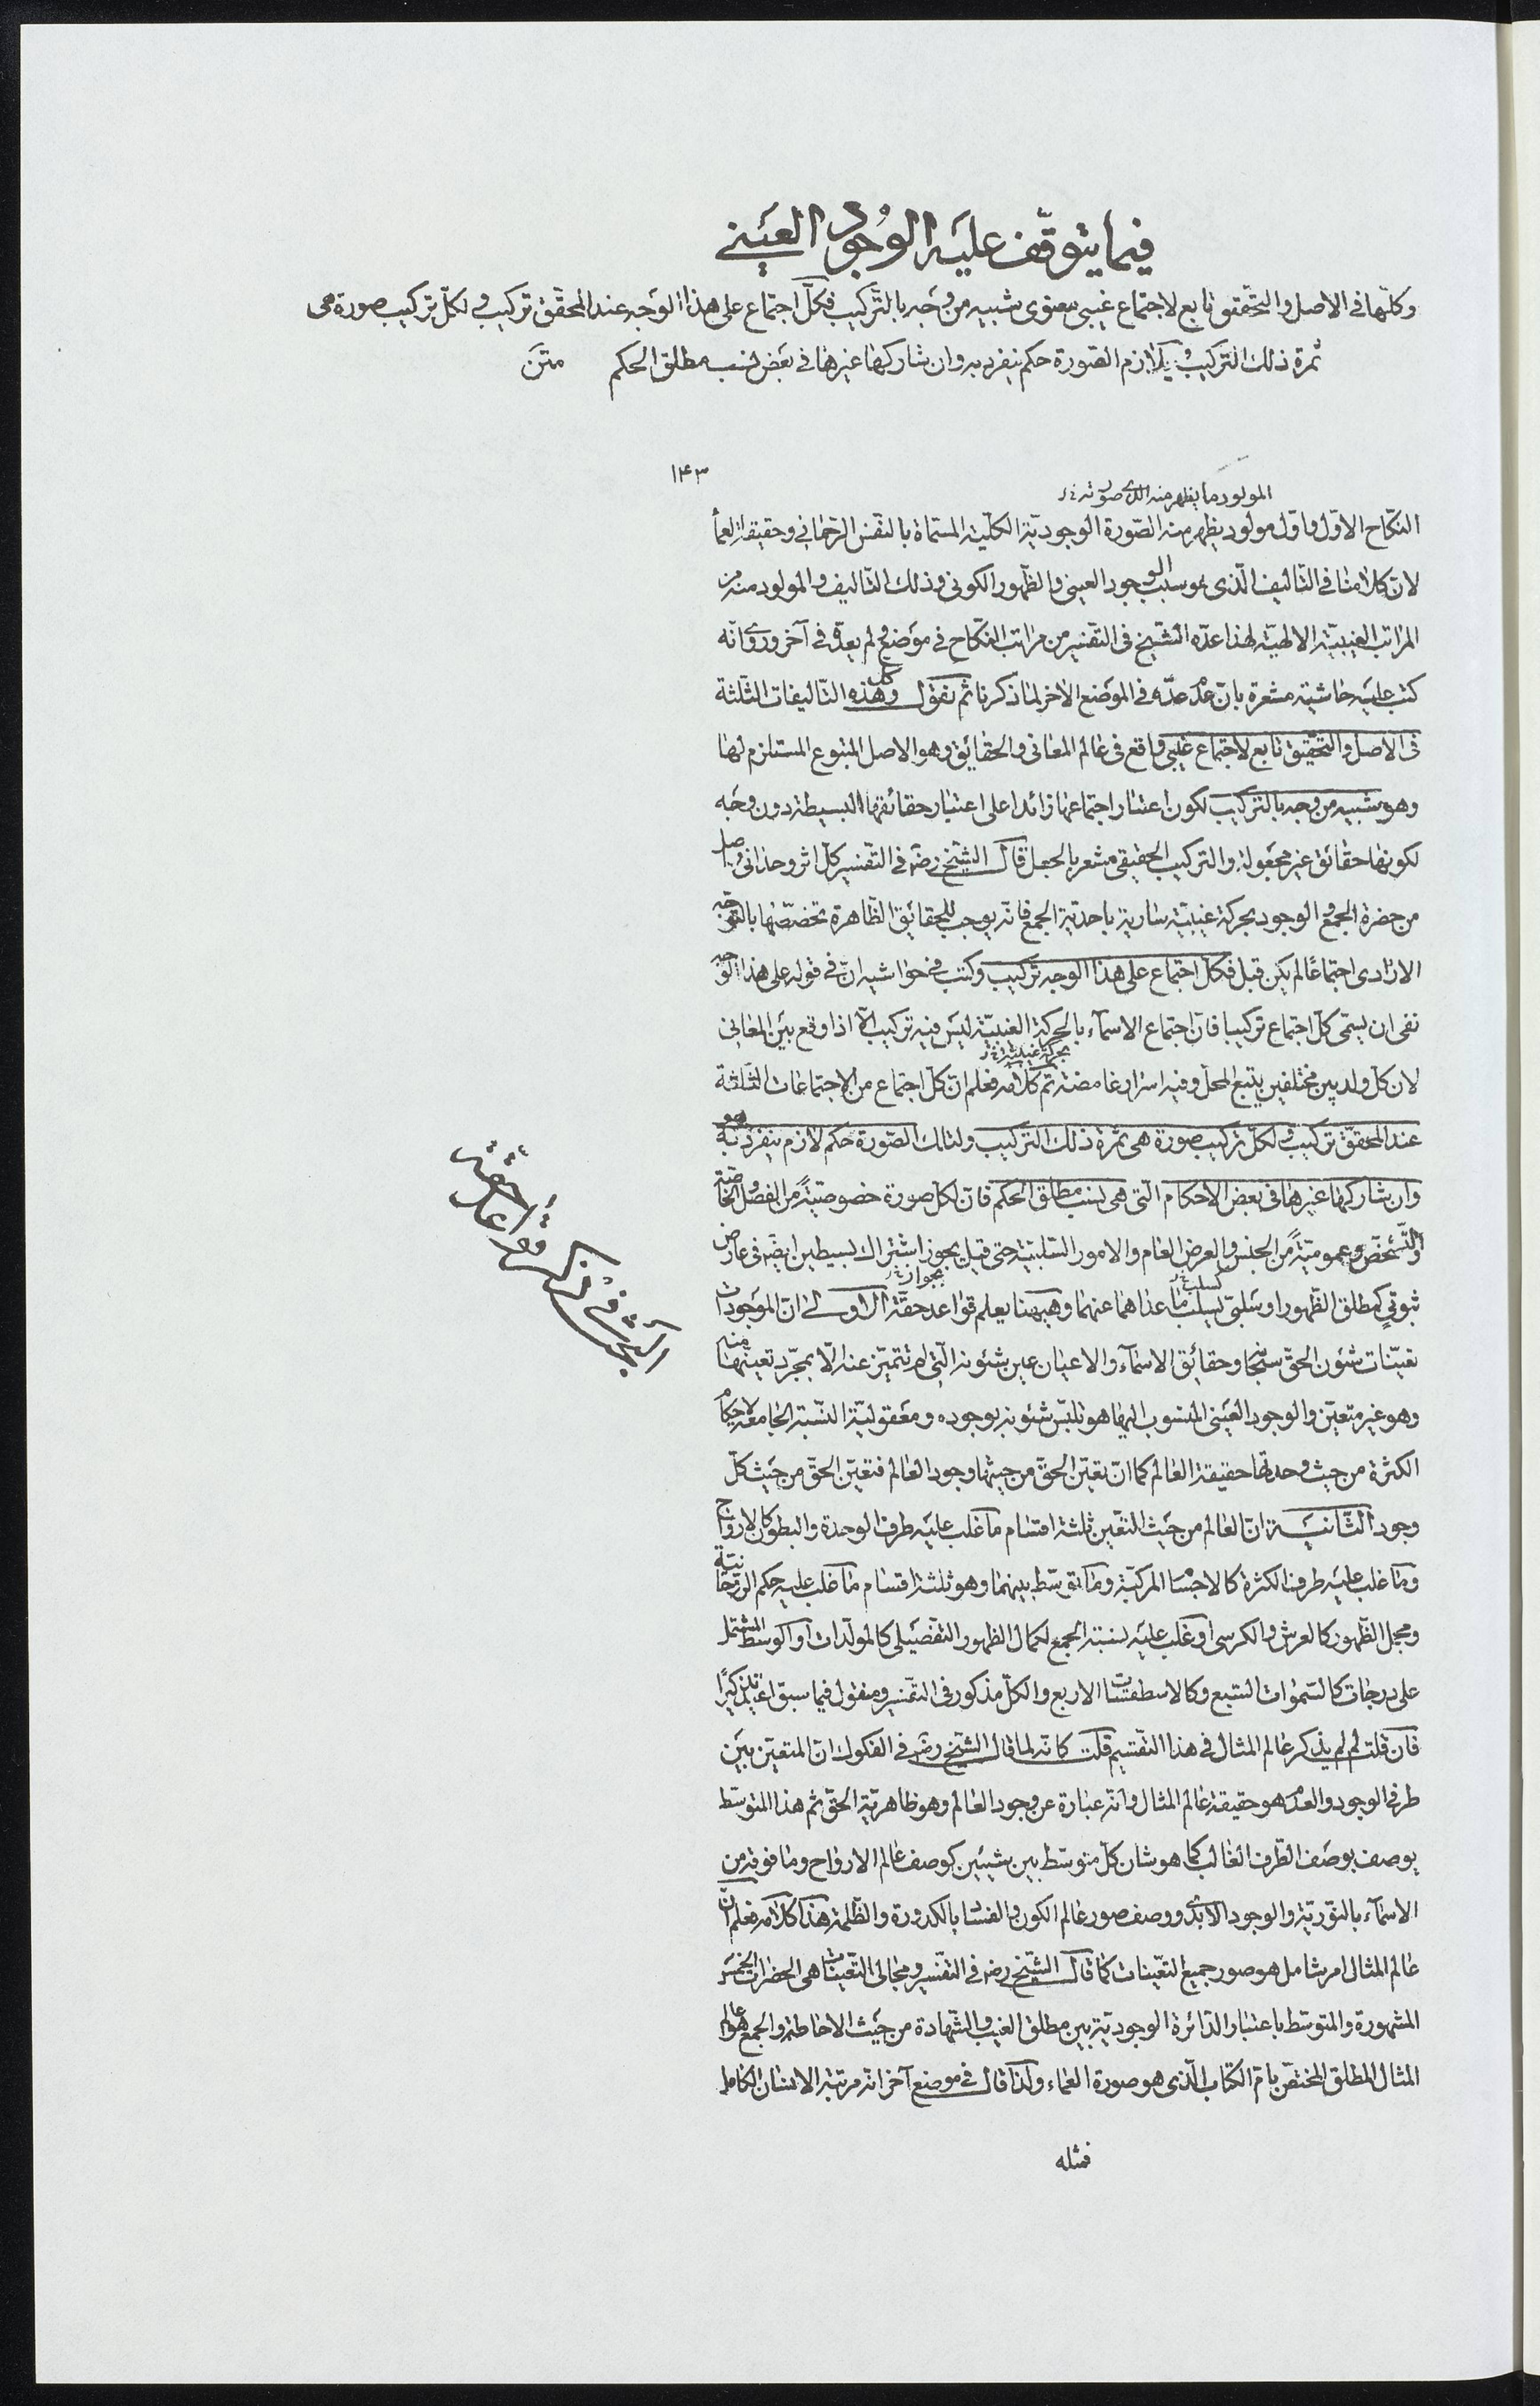 فيما يتوقّف عليه الوُجود العَيني
وكلّها في الاصل والتحقّق تابع لاجتماع غيبي معنوى شبيه من وجه بالتّركيب فكلّ اجتماع على هذا الوَجه عند المحقّق تركيب ولكلّ تركيب صورة هى
ثمرة ذلك التركيب ويلازم الصّورة حكم ينفرد به وان شاركها غيرها في بعَض نسب مطلق الحكم متن
۱۴۳
المولود ما يظهر منه الذى صورته
النكاح الاوّل واوّل مولود يظهر منه الصّورة الوجوديّة الكليّة المسمّاة بالنفس الرّحمانى وحقيقة العمأ
لان كلامنا في التاليف الّذى هو سبب الوجود العينى والظّهور الكونى وذلك التاليف والمولود منه من
المراتب الغيبيّة الالهيّة لهذا عدّه الشّيخ في التفسير من مراتب النكاح في موَضع ولم يعدّه في آخر وروى انّه
كتب عليه حاشية مشعرة بانّ عدم عدّه في الموَضع الاخر لما ذكرنا ثم نقول وكل هذه التاليفات الثلثة
في الاصل والتحقيق تابع لاجتماع غيبي واقع في عالم المعانى والحقايق وهو الاصل المتبوع المستلزم لها
وهو شبيه من وجه بالتركيب لكون اعتبار اجتماعها زائدا على اعتبار حقائقها البسيطة دون وجَه
لكونها حقائق غير مجعولة والتركيب الحقيقى مشعر بالجعل قال الشّيخ رضه في التفسير كل اثر وحدانى وصل
من حضرة الجمع والوجود بحركة غيبيّة سارية باحديّة الجمع فانّه يوجب للحقائق الظّاهرة تخصّصها بالتوجّه
الارادى اجتماعًا لم يكن قبل فكل اجتماع على هذا الوجه تركيب وكتب في حواشيه انّ في قوله على هذا الوَجه
نفى ان يسمّى كل اجتماع تركيبا فانّ اجتماع الاسمآء بالحركة الغيبيّة ليس فيه تركيب الّا اذا وقع بين المعانى
بحركة غيبيّة
لان كل ولد بين مختلفين يتبع المحل وفيه اسرار غامضة تم كلامه فعلم انّ كل اجتماع من الاجتماعات الثلثة
عند المحقّق تركيب ولكلّ تركيب صورة هى ثمرة ذلك التركيب ولتلك الصّورة حكم لازم ينفرد هو به
وان شاركها غيرها في بعض الاحكام التى هى نسب مطلق الحكم فان لكل صورة خصوصيّةً من الفصل والخاصّة
والتشخّص وعموميّةً من الجنس والعرض العام والامور السّلبيّة حتى قيل يجوز اشتراك بسيطين ايضًه في عارض
ثبوتىٍ كمطلق الظّهور او سَلبىّ بسلب ما عداهما عنهما وهيهنا يعلم قواعد حقّة الاولى انّ الموجودات
تعيّنات شئون الحقّ سبحانه وحقايق الاسمآء والاعيان عين شئونه الّتي لم تتميّز عنه الّا بمجرّد تعينها منه
وهو غير متعيّن والوجود العَينى المنسوب اليها هو تلبّس شئونه بوجوده ومعقوليّة النسبة الجامعة لاحكام
الكثرة من حيث وحدتها حقيقة العالم كما انّ تعيّن الحقّ من حيثها وجود العالم فتعيّن الحقّ من حَيث كلّ
وجود الثّانية انّ العالم من حَيث التعّين ثلثة اقسام ما غلب عليه طرف الوحدة والبطون كالارواح
وما غلب عليه طرف الكثرة كالاجسام المركّبة وما توسّط بينهما وهو ثلثة اقسام ما غلب عليه حكم الرّوحانيّة
ومجمل الظّهور كالعرش والكرسى او غلب عليه نسبة الجمع لكمال الظهور التفصَيلى كالمولّدات او الوسط المشتمل
على درجات كالسّموات السّبع وكالاسطقسّات الاربع والكلّ مذكور في التفسير ومنقول فيما سبق
فان قلت لم لم يذكر عالم المثال في هذا التقسيم قلت كانّه لما قال الشّيخ رضه في الفكوك انّ المتعيّن بين
طرفى الوجود والعدم هو حقيقة عالم المثال وانّه عبارة عن وجود العالم وهو ظاهريّة الحقّ ثم هذا المتوسّط
يوصف بوصَف الطّرف الغالب كما هو شان كلّ متوسّط بين شيئين كوصف عالم الارواح وما فوقه من
الاسمآء بالنوريّة والوجود الابدى ووصف صور عالم الكون والفساد بالكدورة والظّلمة هذا كلامه فعلم انّ
عالم المثال امر شامل هو صور جميع التعّينات كما قال الشّيخ رضه في التفسير ومجالى التعّينات هى الحضرات الخمس
المشهورة والمتوسّط باعتبار الدّائرة الوجوديّة بين مطلق الغيب والشّهادة من حَيث الاحاطة والجمع هو عالم
المثال المطلق المختصّ بامّ الكتاب الّذى هو صورة العماء ولذا قال في موضع آخر انّه مرتبة الانسان الكامل
فمثله